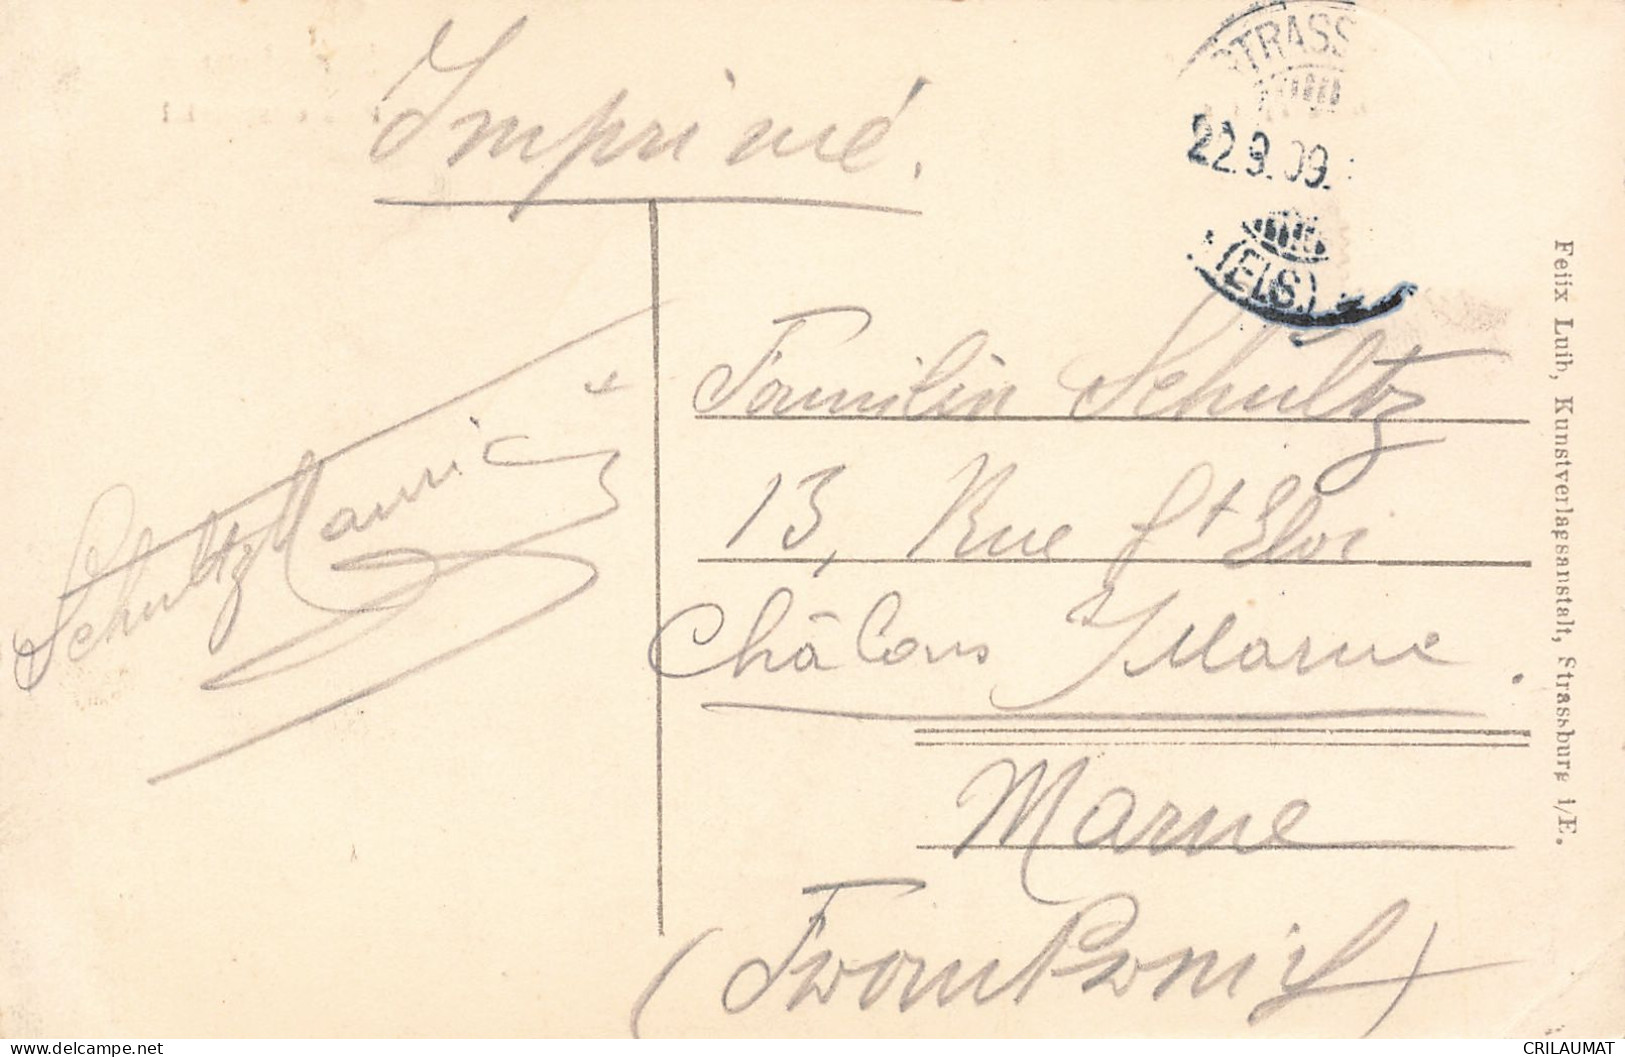 Imprimé.
STRASS
22.9.09.
(ELS.)
Schultz Mauric
Familin Schultz
13, Rue St Eloi
Châlons s/Marne.
Marne
(Frankrnich)
Felix Luib, Kunstverlagsanstalt, Strassburg i/E.
CRILAUMAT